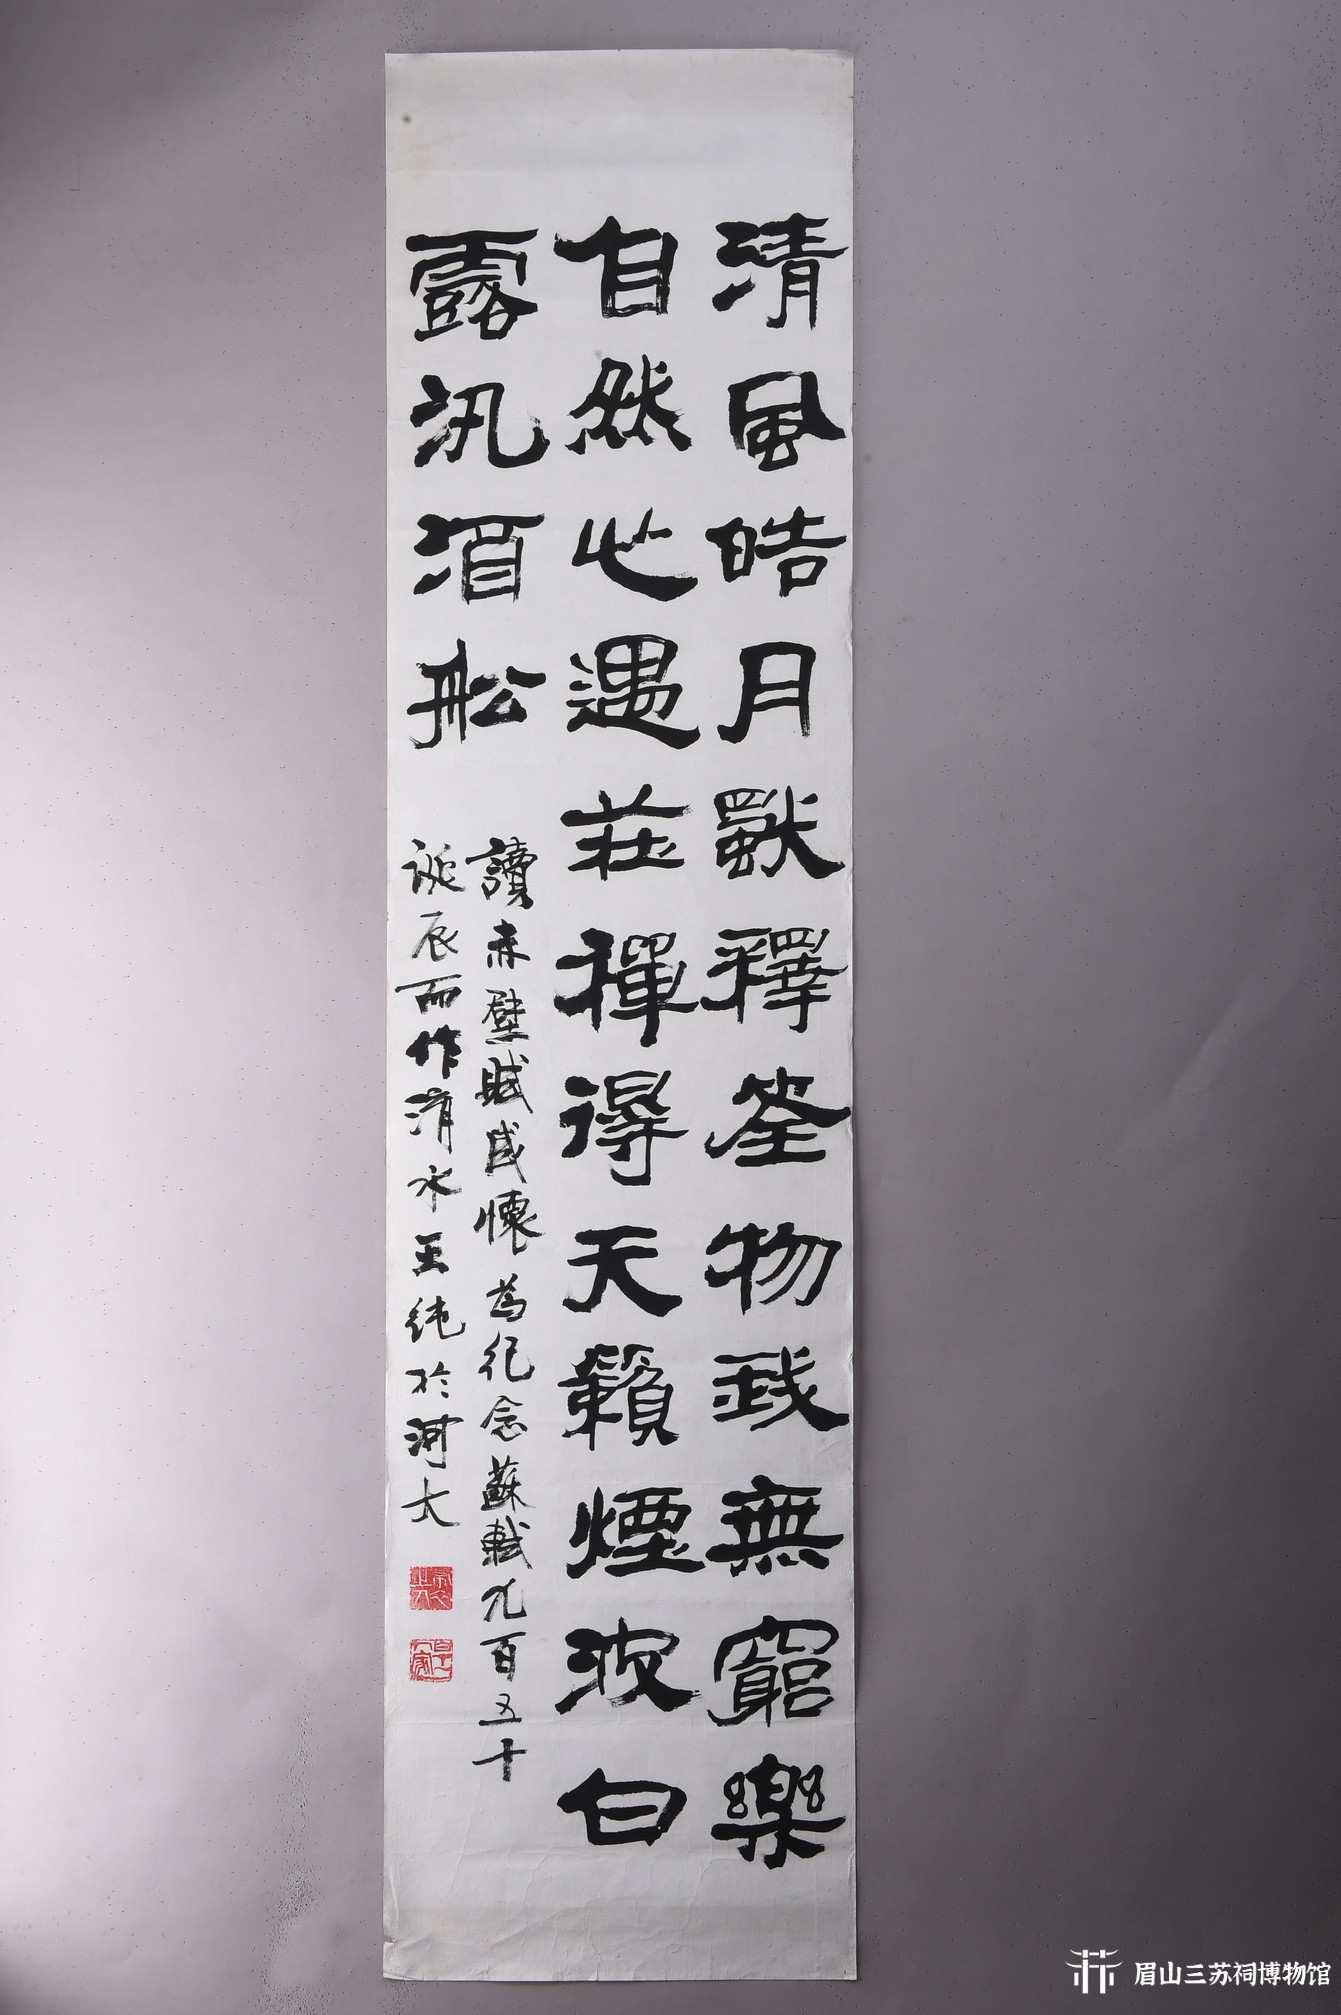 清風皓月獸釋筌物我無窮樂
自然心遇莊禪得天籟煙波白
露汎酒船
讀赤壁賦感懷為紀念蘇軾九百五十
誕辰而作清水王純於河大
眉山三苏祠博物馆